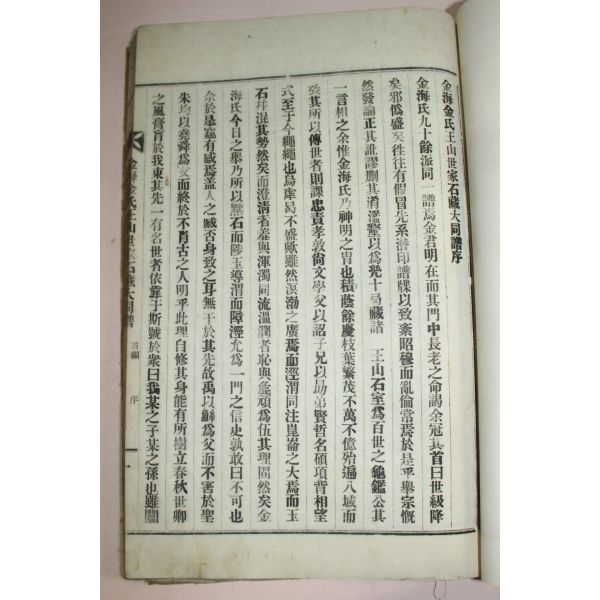 金海金氏王山世家石藏大同譜序
金海氏九十餘派同一譜焉金君明在而其門中長老之命謁余冠其首曰世級降
矣邪僞盛矣徃徃有假冒先系潜印譜牒以致紊昭穆而亂倫常焉於是乎擧宗慨
然發論正其訛謬刪其淆濫槩以爲凡十㢧藏諸 王山石室爲百世之龜鑑公其
一言相之余惟金海氏乃神明之胄也積蔭餘慶枝葉繁茂不萬不億殆遍八域而
殽其所以傳世者則課忠責孝敦尙文學父以詔子兄以勗弟賢哲名碩項背相望
式至于今繩繩也烏虖曷不盛歟雖然溟渤之廣焉而涇渭同注崑崙之大焉而玉
石幷混其勢然矣而澄淸者羞與渾濁同流溫潤者恥與麁頑爲伍其理固然矣金
海氏今日之擧乃所以黜石而陟玉導渭而障涇允爲一門之信史孰敢曰不可也
余於是竊有感焉盖人之臧否身致之耳無干於其先故禹以鯀爲父而不害於聖
朱均以堯舜爲父而終於不肖古之人明乎此理自修其身能有所樹立春秋世卿
之風膏肓於我東其先一有名世者依靠于斯號於衆曰我某之子某之孫也雖闒
金海金氏王山世家石藏大同譜 首編 序 一